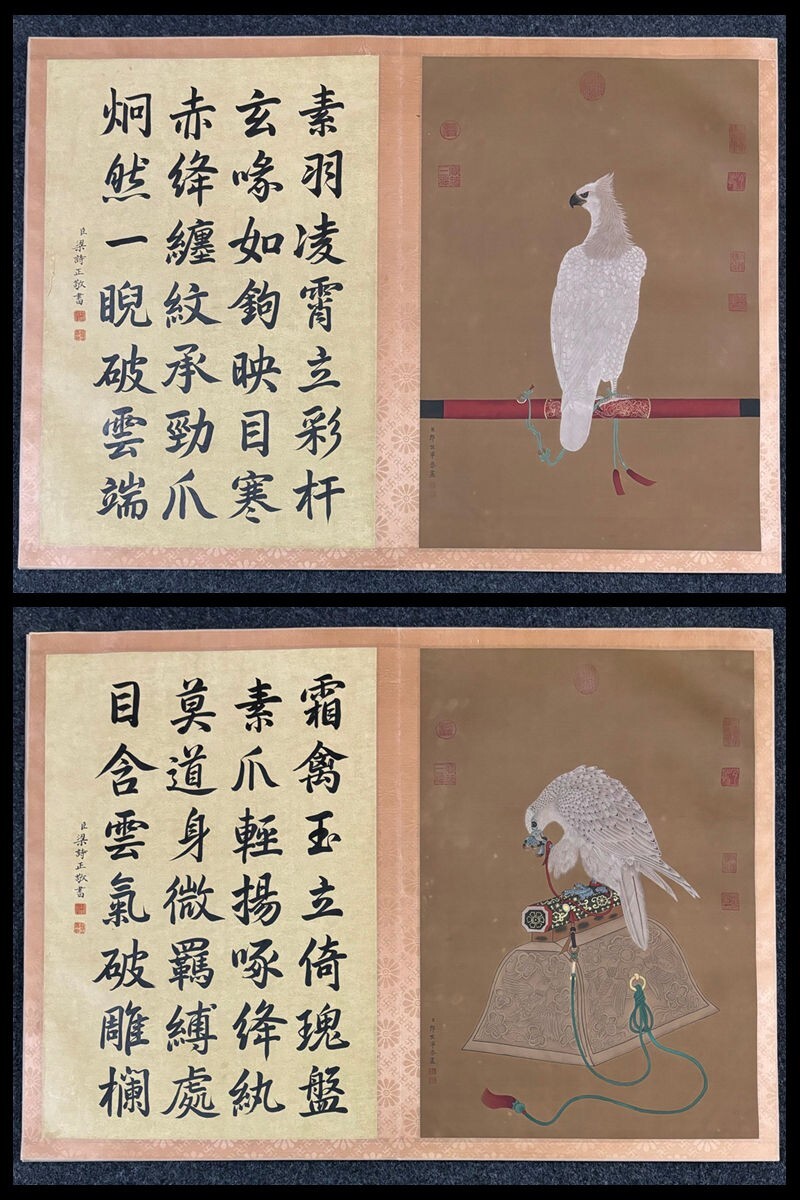 素羽凌霄立彩杆
玄喙如鉤映目寒
赤絳纏紋承勁爪
炯然一睨破雲端
臣梁詩正敬書
臣郎世寧恭畫
霜禽玉立倚瑰盤
素爪輕揚啄絳紈
莫道身微羈縛處
目含雲氣破雕欄
臣梁詩正敬書
臣郎世寧恭畫